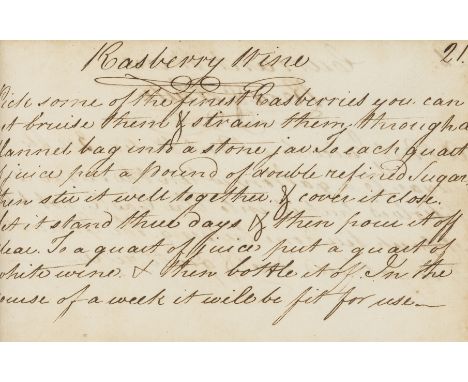 Rasberry Wine 21.
ick some of the finest Rasberries you can
t bruise them & strain them through a
lannel bag into a stone jar. To each quart
f juice put a Pound of double refined Sugar
hen stir it well together, & cover it close.
et it stand three days & then pour it off
lear. To a quart of juice put a quart of
hite wine & then bottle it off. In the
ourse of a week it will be fit for use.